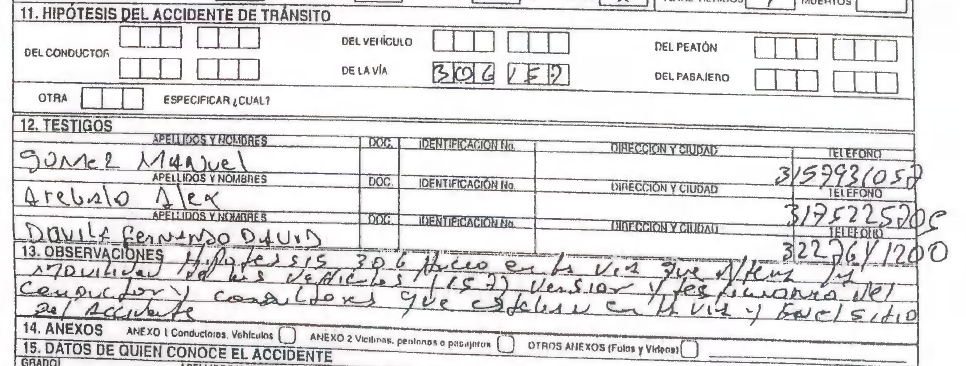 MUERTOS
11. HIPÓTESIS DEL ACCIDENTE DE TRÁNSITO
DEL CONDUCTOR DEL VEHÍCULO DEL PEATÓN
DE LA VÍA 306 157 DEL PASAJERO
OTRA ESPECIFICAR ¿CUAL?
12. TESTIGOS
APELLIDOS Y NOMBRES DOC. IDENTIFICACION No. DIRECCION Y CIUDAD TELEFONO
Gomez Manuel 3157931057
APELLIDOS Y NOMBRES DOC. IDENTIFICACIÓN No. DIRECCION Y CIUDAD TELEFONO
Arebalo Alex 3175225705
APELLIDOS Y NOMBRES DOC. IDENTIFICACIÓN No. DIRECCION Y CIUDAD TELEFONO
Davila Fernando David 3227641200
13. OBSERVACIONES Hipotesis 306 hueco en la via que altera la
movilidad de los vehiculos (157) version y testimonio del
conductor y conductores que estaban en la via y en el sitio
del Accidente
14. ANEXOS ANEXO 1 Conductores, Vehículos ANEXO 2 Víctimas, peatones o pasajeros OTROS ANEXOS (Fotos y Videos)
15. DATOS DE QUIEN CONOCE EL ACCIDENTE
GRADO